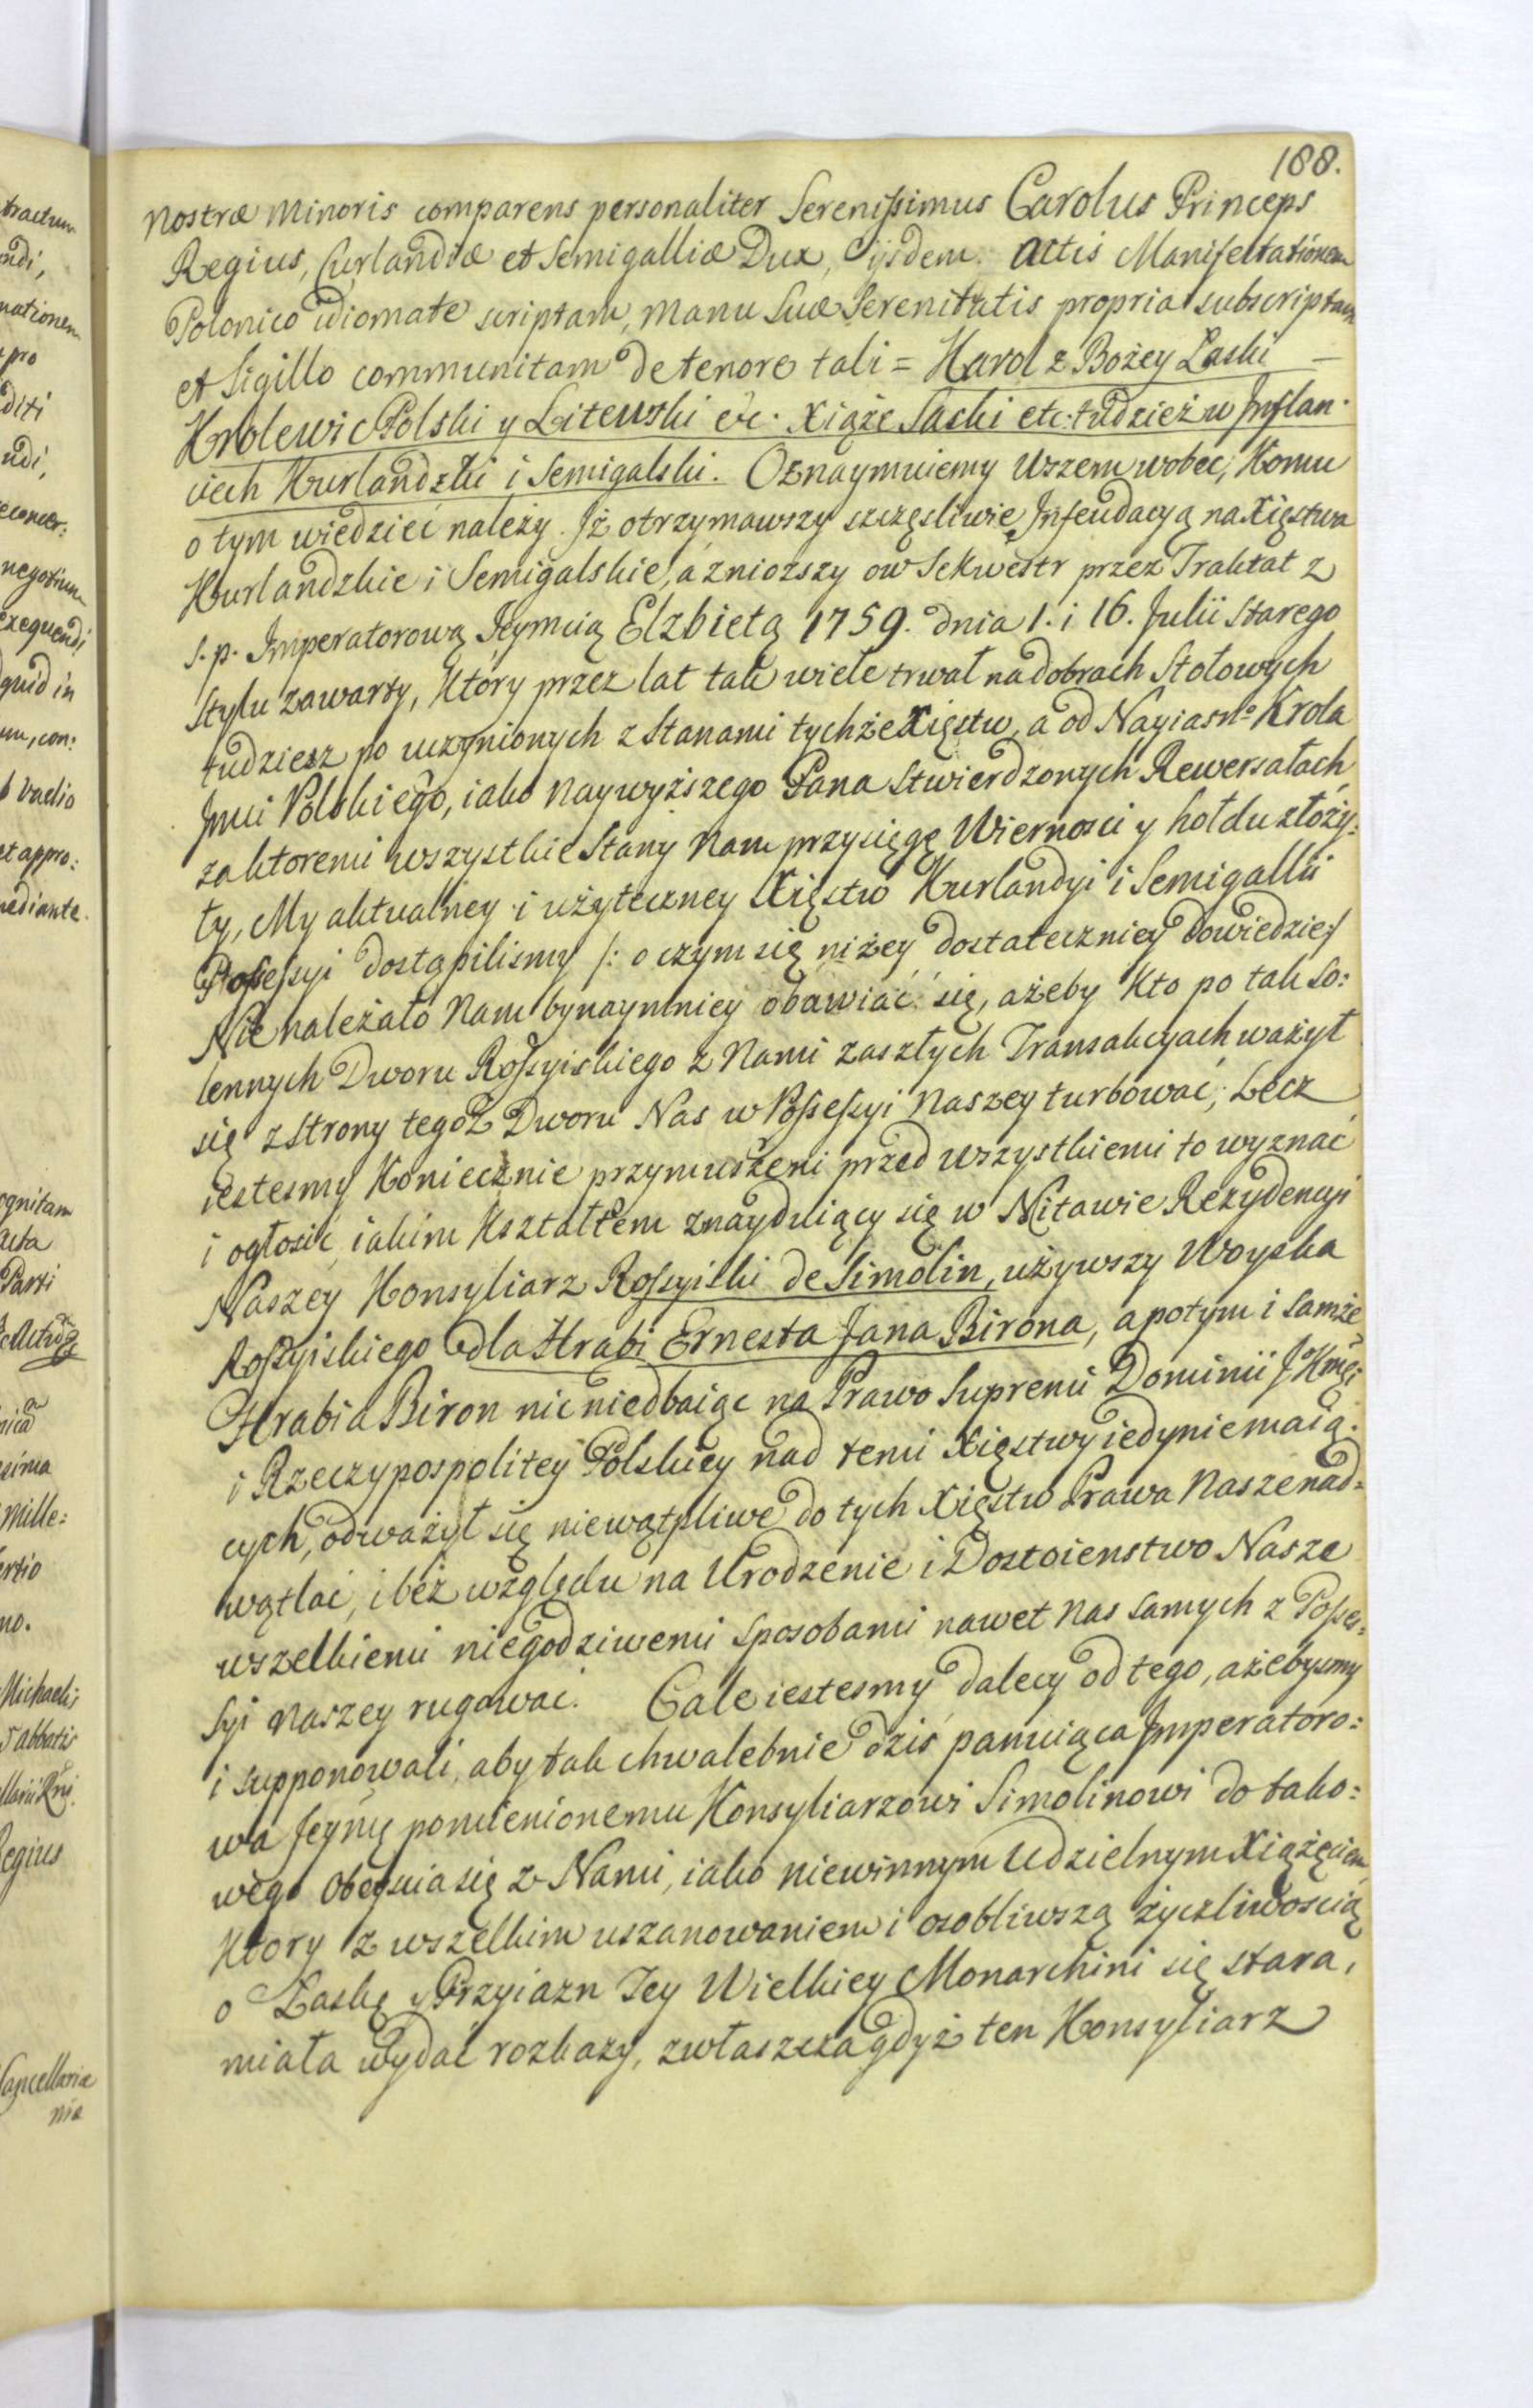 188.
Nostræ Minoris comparens personaliter Serenissimus Carolus Princeps
Regius, Curlandiæ et Semigalliæ Dux, ijsdem Actis Manifestationem
Polonico idiomate scriptam, manu Suæ Serenitatis propria subscriptam
et Sigillo communitam de tenore tali = Karol z Bożey Łaski —
Krolewic Polski y Litewski etc. Xiąże Saski etc. tudzież w Inflan-
ciech Kurlandzki i Semigalski. Oznaymuiemy wszem wobec, Komu
o tym wiedzieć należy. Iż otrzymawszy szczęsliwie Infeudacyą na Xięstwa
Kurlandzkie i Semigalskie, a zniozszy ow Sekwestr przez Traktat z
s. p. Imperatorową Jeymcią Elzbietą 1759. dnia 1. i 16. Julii Starego
Stylu zawarty, Ktory przez lat tak wiele trwał na dobrach Stołowych
tudziesz po uczynionych z Stanami tychże Xięstw, a od Nayiasno Krola
Jmci Polskiego, iako naywyższego Pana stwierdzonych Rewersałach,
za ktoremi wszystkie Stany Nam przysięgę Wiernosci y hołdu złoży:
ty, My aktualney i użyteczney Xięstw Kurlandyi i Semigallii
Possessyi dostąpilismy /: o czym się niżey dostateczniey dowiedzie :/
Nie należało Nam bynaymniey obawiać się, ażeby Kto po tak So:
lennych Dworu Rossyiskiego z Nami zaszłych Transakcyach ważył
się z strony tegoż Dworu Nas w Possessyi Naszey turbować; Lecz
iestesmy Koniecznie przymuszeni przed wszystkiemi to wyznać
i ogłosić, iakim Kształtem znayduiący się w Mitawie Rezydencyi
Naszey Konsyliarz Rossyiski de Simolin, używszy Woyska
Rossyiskiego dla Hrabi Ernesta Jana Birona, a potym i samże
Hrabia Biron nic niedbaiąc na Prawo Supremi Dominii J. K mci
i Rzeczypospolitey Polskiey nad temi Xięstwy iedynie maią:
cych, odważył się niewątpliwe do tych Xięstw Prawa Nasze nad-
wątlać, i bez względu na Urodzenie i Dostoienstwo Nasze
wszelkiemi niegodziwemi sposobami nawet Nas samych z Posses:
syi Naszey rugować. Cale iestesmy dalecy od tego, ażebysmy
i supponowali, aby tak chwalebnie dziś panuiąca Imperatoro:
wa Jeymć pomienionemu Konsyliarzowi Simolinowi do tako:
wego obeyscia się z Nami, iako niewinnym Udzielnym Xiążęciem
Ktory z wszelkim uszanowaniem i osobliwszą życzliwoscią
o Łaskę y Przyiazn Jey Wielkiey Monarchini się stara,
miała wydać rozkazy, zwłaszcza gdyż ten Konsyliarz